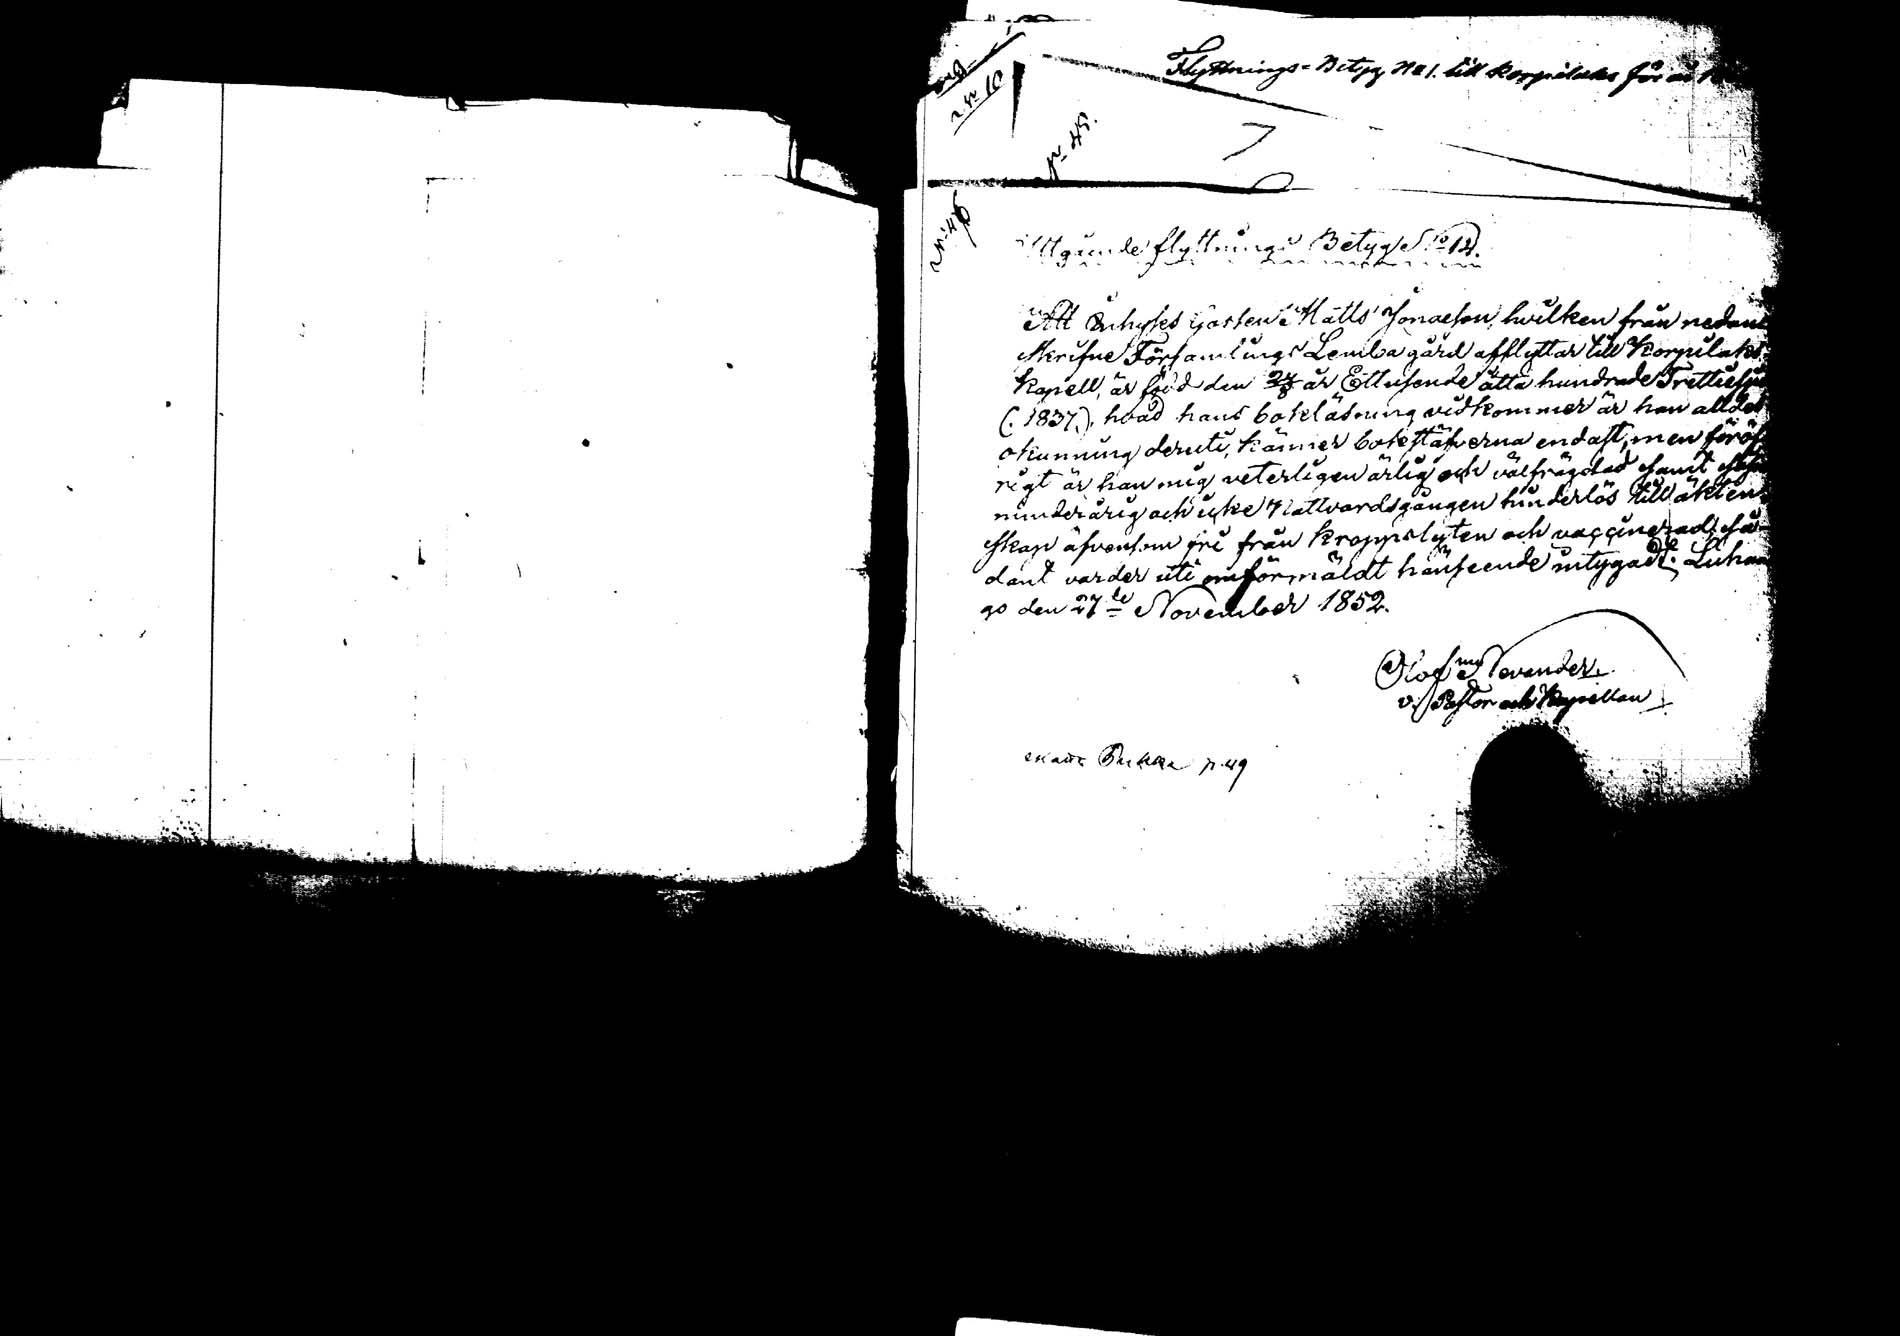 Flyttnings-Betyg No 1. till Korpilaks för år
No 10
No 48.
No 46
Utgående flyttnings Betyg No 12.
Att Inhyses Gossen Matts Jonaeson, hvilken från nedan
skrifne Församlings Lemba gård afflyttar till Korpilaks
Kapell, är född den 24/8 år Ettusende åtta hundrade Trettiosju
(:1837:), hvad hans bokläsning vidkommer är han alldel
okunning deruti, känner bokstäfverna endast, men föröf
rigt är han mig veterligen ärlig och välfrägdad samt
minderårig och icke Nattvardsgången hinderlös till äkten-
skap äfvensom fri från kroppslyten och vaccinerad; så-
dant varder uti omförmäldt hänseende intygadt. Luhan
go den 27de November 1852.
Olof Nevander.
v. Pastor och Kapellan
p. 49